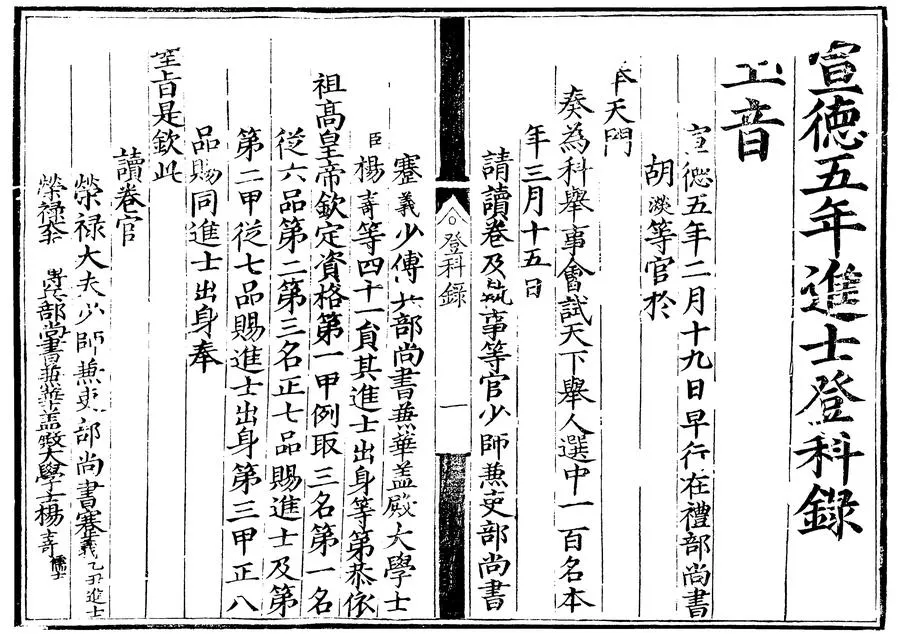 宣德五年進士登科錄
玉音
宣德五年二月十九日早行在禮部尚書
胡濙等官於
奉天門
奏為科舉事會試天下舉人選中一百名本
年三月十五日
請讀卷及執事等官少師兼吏部尚書
登科錄 一
蹇義少傅兵部尚書兼華蓋殿大學士
臣楊等四十一員其進士出身等第恭依
祖高皇帝欽定資格第一甲例取三名第一名
從六品第二第三名正七品賜進士及第
第二甲從七品賜進士出身第三甲正八
品賜同進士出身奉
聖旨是欽此
讀卷官
榮祿大夫少師兼吏部尚書蹇義乙丑進士
榮祿大 部尚書兼華蓋殿大學士楊 儒士